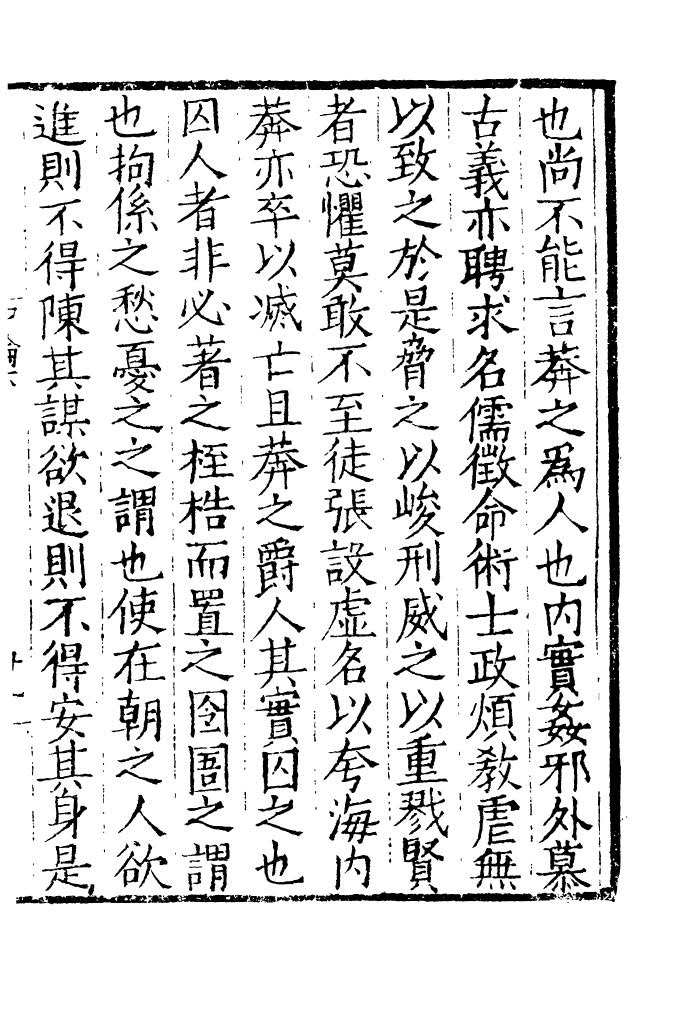 也尚不能言莽之爲人也内實姦邪外慕
古義亦聘求名儒徵命術士政煩敎虐無
以致之於是脅之以峻刑威之以重戮賢
者恐懼莫敢不至徒張設虛名以夸海内
莽亦卒以滅亡且莽之爵人其實囚之也
囚人者非必著之桎梏而置之囹圄之謂
也拘係之愁憂之之謂也使在朝之人欲
進則不得陳其謀欲退則不得安其身是